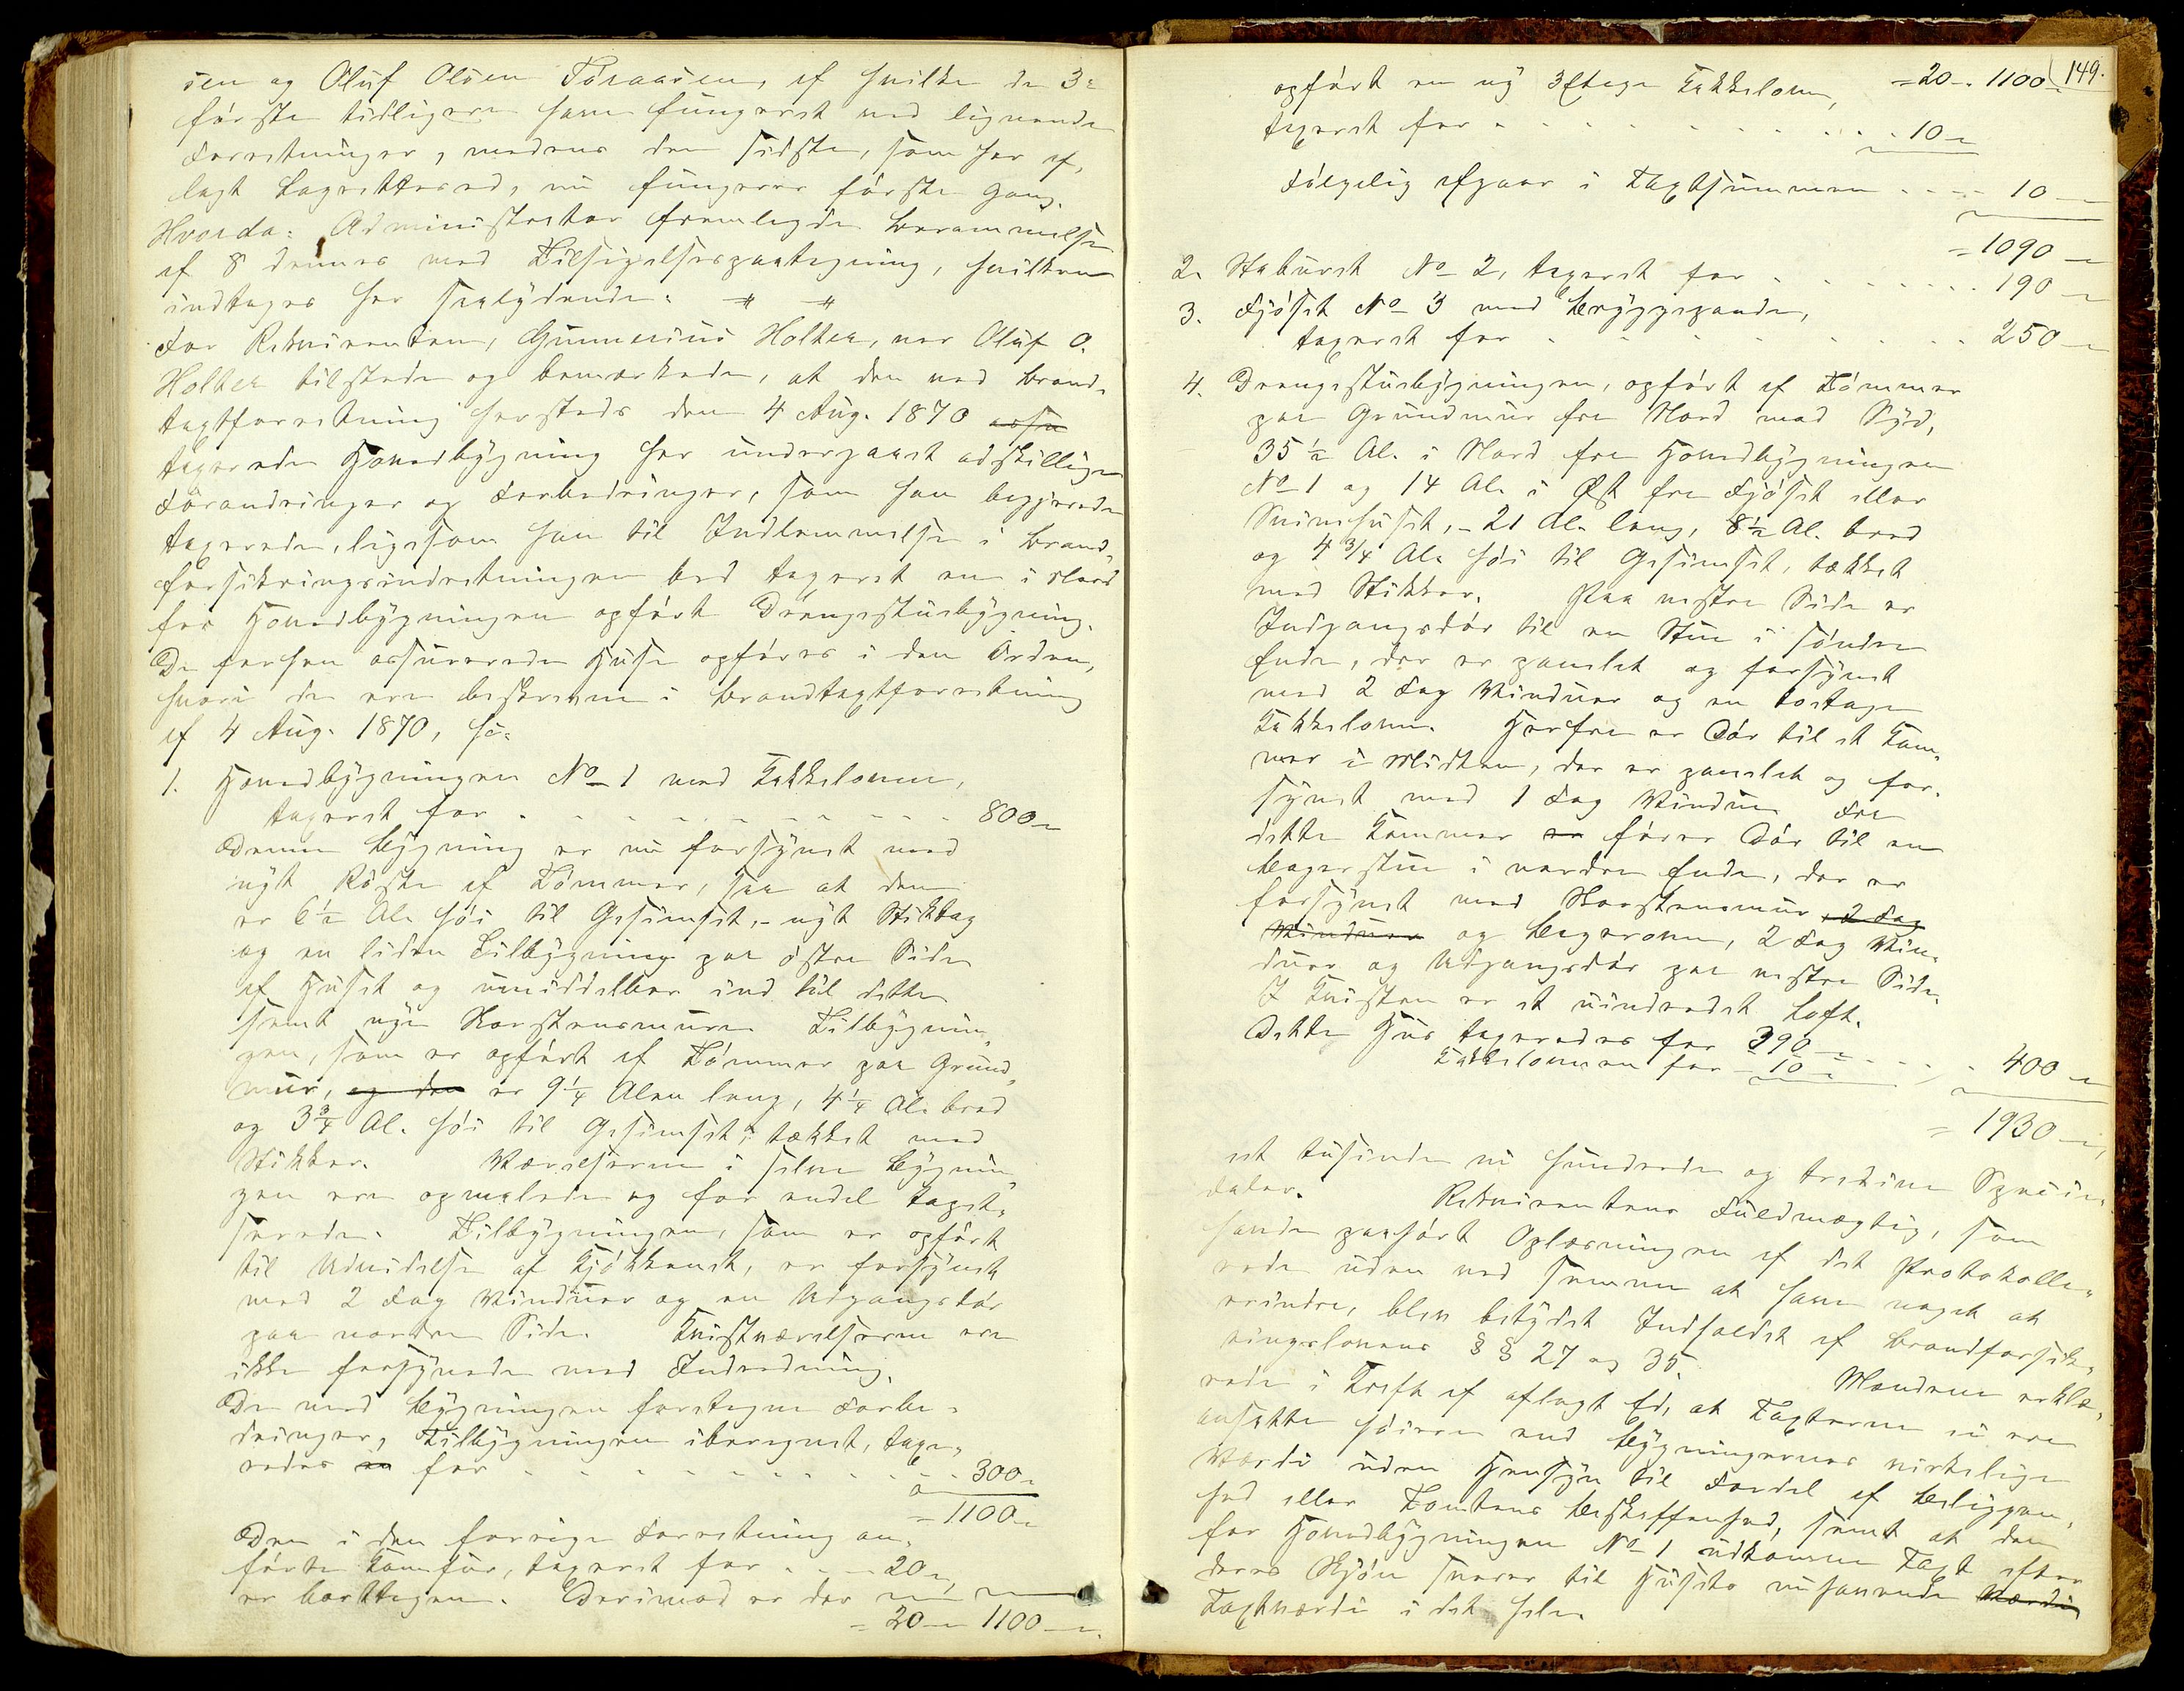 sen og Oluf Olsen Toraasen, af hvilke de 3
første tidligere have fungeret ved lignende
Forretninger, medens den sidste, som har af-
lagt Lagretteeed, nu fungerer første Gang.
Hvorda: Administrator fremlagde Berammelse
af 8 dennes med Tilsigelsespaategning, hvilken
indtages her saalydende. # #
For Rekvirenten, Gunnerius Holter, var Oluf O.
Holter tilstede og bemærkede, at den ved Brand-
taxtforretning hersteds den 4 Aug. 1870
taxerede Hovedbygning har undergaaet adskillige
Forandringer og Forbedringer, som han begjerede
taxerede, ligesom han til Indlemmelse i Brand-
forsikringsindretningen bad taxeret en i Nord
for Hovedbygningen opført Drengestuebygning.
De forhen assurerede Huse opføres i den Orden,
hvori de ere beskrevne i Brandtaxtforretning
af 4 Aug. 1870, så:
1. Hovedbygningen No 1 med Kakkelovne,
taxeret for . . . . . . . . . . 800 -
Denne Bygning er nu forsynet med
nyt Røste af Tømmer, saa at den
er 6 1/2 Al. høi til Gesimset, - nyt Stiktag
og en liden Tilbygning paa østre Side
af Huset og umiddelbar ind til dette
samt nye Skorstensmure. Tilbygnin-
gen, som er opført af Tømmer paa Grund-
mur, og den er 9 1/4 Alen lang, 4 1/4 Al. bred
og 3 3/4 Al. høi til Gesimset, tækket med
Stikker. Værelserne i selve Bygnin-
gen ere opmalede og for endel tapet-
serede. Tilbygningen, som er opført
til Udvidelse af Kjøkkenet, er forsynet
med 2 Fag Vinduer og en Udgangsdør
paa nordre Side. Kvistværelserne ere
ikke forsynede med Indredning.
De ved Bygningen foretagne Forbe-
dringer, Tilbygningen iberegnet, taxe-
redes for . . . . . . . . . . 300 -
= 1100 -
Den i den forrige Forretning an-
førte Komfur, taxeret for . . - 20 -,
er borttagen. Derimod er der
= 20 - 1100 -.
149.
opført en ny 3Etages Kakkelovn, = 20 - 1100 -
taxeret for . . . . . . . . . . 10 -
Følgelig afgaar i Taxtsummen . . . . 10 -
= 1090 -
2. Staburet No 2, taxeret for . . . . . . . 190 -
3. Fjøset No 3 med Bryggepande,
taxeret for . . . . . . . . . 250 -
4. Drengestuebygningen, opført af Tømmer
paa Grundmur fra Nord mod Syd,
35 1/2 Al. i Nord fra Hovedbygningen
No 1 og 14 Al. i Øst fra Fjøset eller
Svinehuset, - 21 Al. lang, 8 1/2 Al. bred
og 4 3/4 Al. høi til Gesimset, tækket
med Stikker. Paa vestre Side er
Indgangsdør til en Stue i søndre
Ende, der er panelet og forsynet
med 2 Fag Vinduer og en toetages
Kakkelovn. Herfra er Dør til et Kam-
mer i Midten, der er panelet og for-
synet med 1 Fag Vindue Fra
dette Kammer er fører Dør til en
Bagerstue i nordre Ende, der er
forsynet med Skorstensmur, 2 Fag
Vinduer og Bagerovn, 2 Fag Vin-
duer og Udgangsdør paa vestre Side.
I Kvisten er et uindredet Loft.
Dette Hus taxeredes for 390 -
Kakkelovnen for - 10 - . . . . 400 -
= 1930 -,
et tusinde ni hundrede og tredive Specie-
daler. Rekvirentens Fuldmægtig, som
havde paahørt Oplæsningen af det Protokolle-
rede uden ved samme at have noget at
erindre, blev betydet Indholdet af Brandforsik-
ringslovens §§ 27 og 35. Mændene erklæ-
rede i Kraft af aflagt Ed, at Taxterne ei ere
ansatte høiere end Bygningernes virkelige
Værdi uden Hensyn til Fordel af Beliggen-
hed eller Tomtens Beskaffenhed, samt at den
for Hovedbygningen No 1 udkomne Taxt efter
deres Skjøn svarer til Husets nuhavende Værdi
Taxtværdi i det Hele.